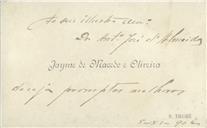 ao seu illustre am.º
Dr. Antº José d'Almeida
Jayme de Macedo e Oliveira
deseja promptas melhoras
S. THOMÉ